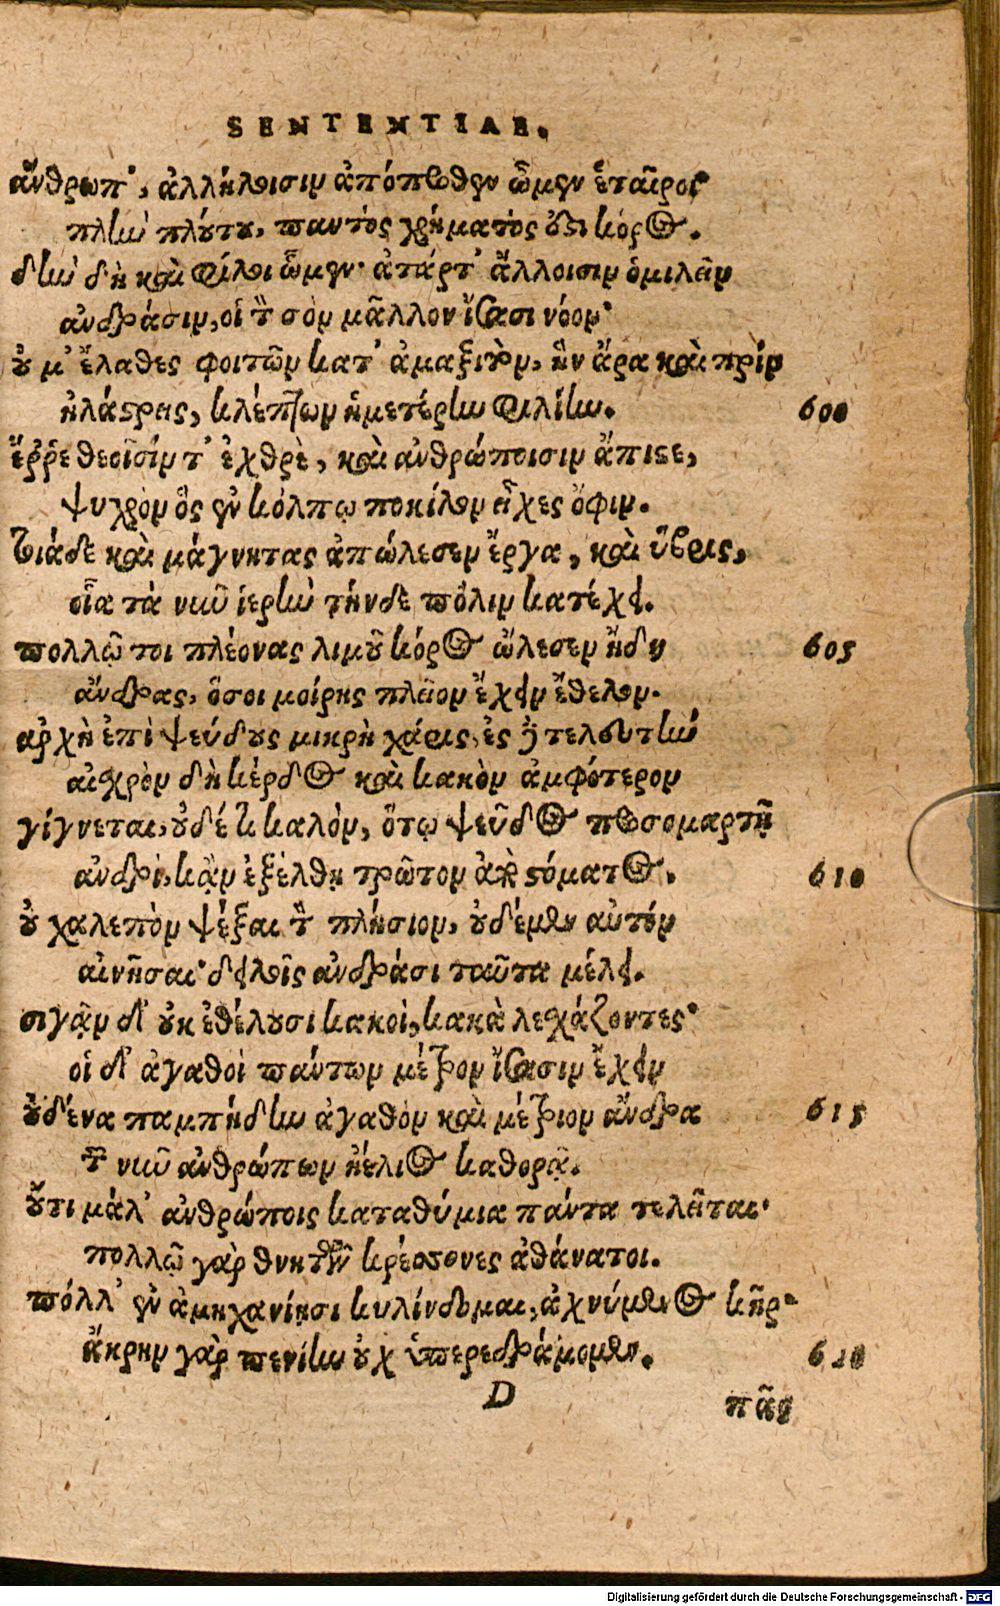 SENTENTIAE.
ἄνθρωπ', ἀλλήλοισιν ἀπόπροθεν ὦμεν ἑταῖροι·
πλὴν πλούτου, παντὸς χρήματός ὅστι κόρος.
δὴν δὴ καὶ φίλοι ὦμεν· ἀτάρτ' ἄλλοισιν ὁμιλεῖν
ἀνδράσιν, οἳ τὸν σὸν μᾶλλον ἴσασι νόον·
οὔ μ' ἔλαθες φοιτῶν κατ' ἀμαξιτὸν, ἣν ἄρα καὶ πρὶν
ἠλάστρεις, κλέπτων ἡμετέρην φιλίην. 600
ἔῤῥε θεοῖσίν τ' ἐχθρὲ, καὶ ἀνθρώποισιν ἄπιστε,
ψυχρὸν ὃς ἐν κόλπῳ ποκίλον εἶχες ὄφιν.
τοιάδε καὶ μάγνητας ἀπώλεσεν ἔργα, καὶ ὕβρις,
οἷα τὰ νῦν ἱερὴν τήνδε πόλιν κατέχει.
πολλῷ τοι πλέονας λιμοῦ κόρος ὤλεσεν ἤδη 605
ἄνδρας, ὅσοι μοίρης πλεῖον ἔχειν ἔθελον.
ἀρχὴ ἐπὶ ψεύδους μικρὴ χάρις, ἐς δὲ τελευτὴν
αἰσχρὸν δὴ κέρδος καὶ κακὸν ἀμφότερον
γίγνεται, οὐδέ τι καλὸν, ὅτῳ ψεῦδος προσομαρτῇ
ἀνδρὶ, κᾂν ἐξέλθῃ πρῶτον ἀπὸ στόματος. 610
οὐ χαλεπὸν ψέξαι τὸν πλήσιον, οὐδέμεν αὐτὸν
αἰνῆσαι· δειλοῖς ἀνδράσι ταῦτα μέλει.
σιγᾷν δ' οὐκ ἐθέλουσι κακοὶ, κακὰ λεσχάζοντες·
οἱ δ' ἀγαθοὶ πάντων μέτρον ἴσασιν ἔχειν
οὐδένα παμπήδην ἀγαθὸν καὶ μέτριον ἄνδρα 615
τῶν νῦν ἀνθρώπων ἠέλιος καθορᾷ.
οὔτι μάλ' ἀνθρώποις καταθύμια πάντα τελεῖται·
πολλῷ γὰρ θνητῶν κρέσσονες ἀθάνατοι.
πόλλ' ἐν ἀμηχανίῃσι κυλίνδομαι, ἀχνύμενος κῆρ·
ἄκρην γὰρ πενίην οὐχ ὑπερεδράμομεν. 620
D
πᾶς
Digitalisierung gefördert durch die Deutsche Forschungsgemeinschaft - DFG